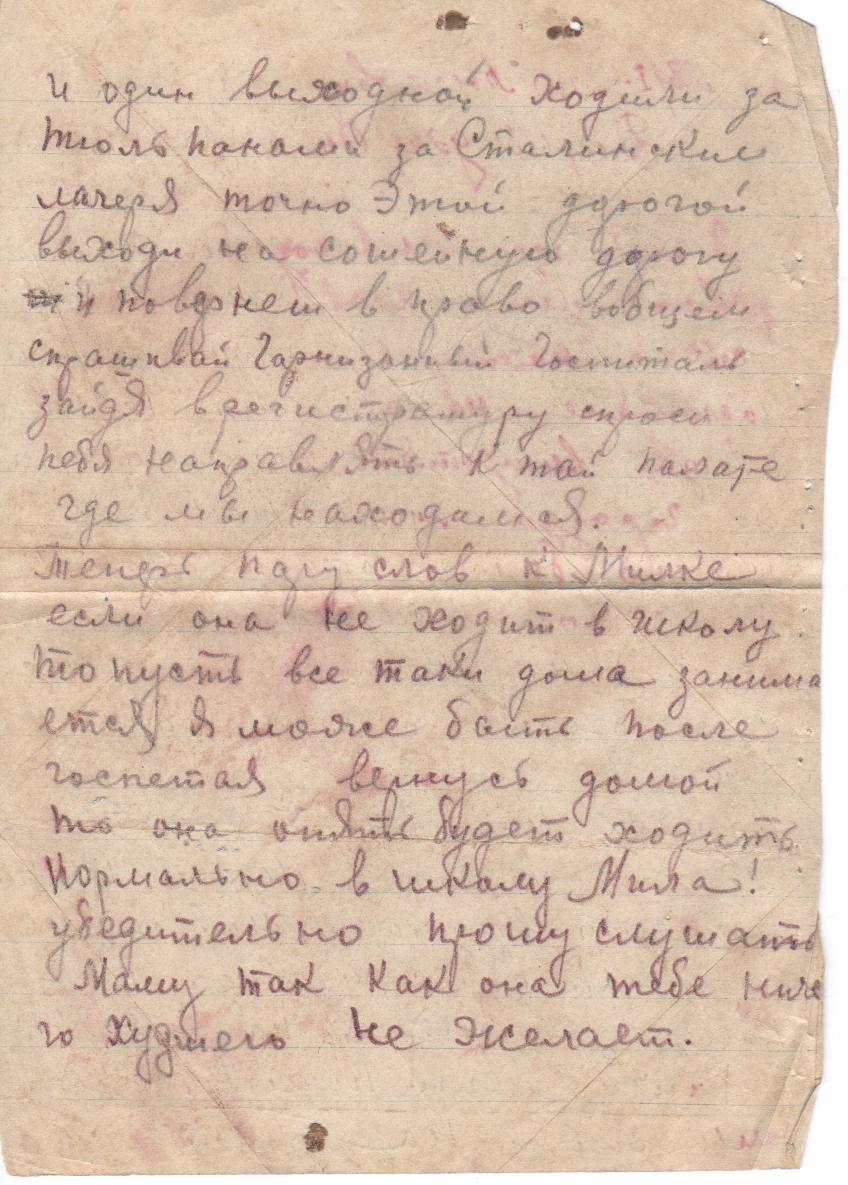 и один выходной ходили за
тюльпанами за Сталинские
лагеря точно Этой дорогой
выходи на сошейную дорогу
и повернеш в право вобщем
спрашивай Гарнизонный Госпиталь
зайдя в регистратуру спроси
тебя направлять к той палате
где мы находимся.
Теперь пару слов к Милке
если она не ходит в школу
то пусть все таки дома занима
ется я може быть после
госпеталя вернусь домой
то она опять будет ходить
нормально в школу Мила!
убедительно прошу слушать
Маму так как она тебе ниче
го худшего не желает.